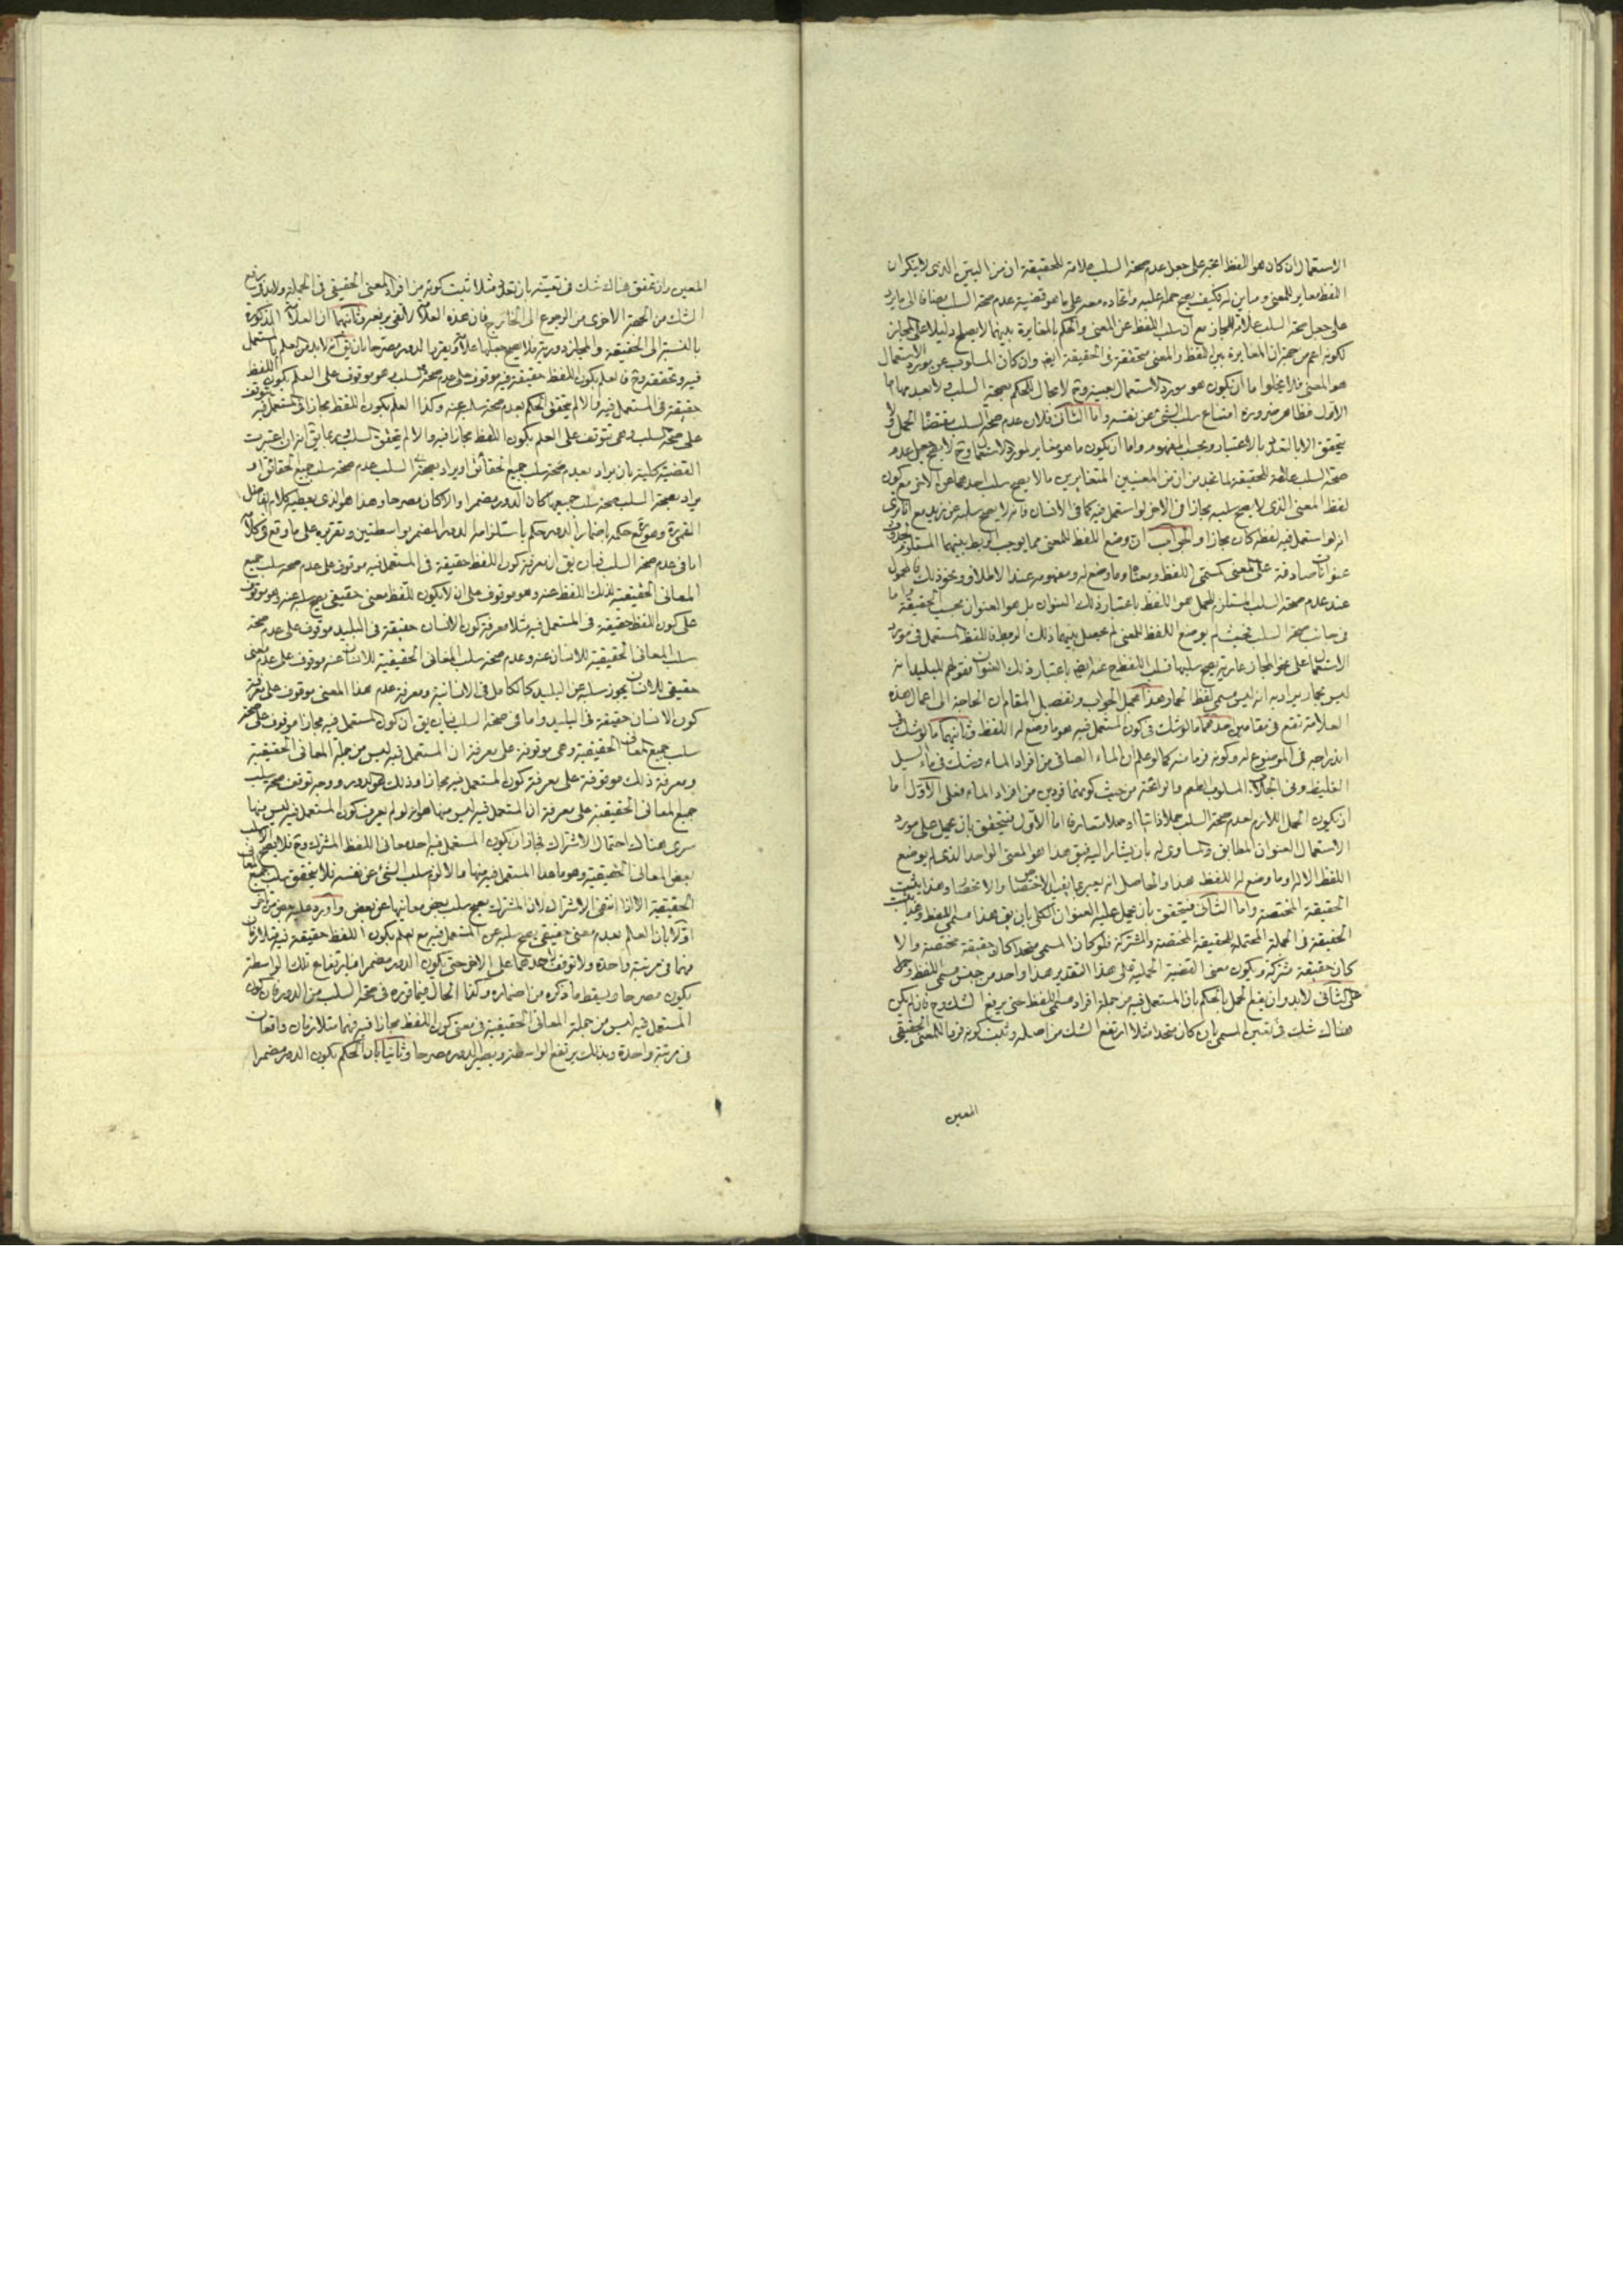 الاستعمال ان كان هو اللفظ اتجه على جعل عدم صحة السلب علامة للحقيقة ان من البين الذى لا ينكر ان
اللفظ مغاير للمعنى ومباين له فكيف يصح حمله عليه واتحاده معه على ما هو قضية عدم صحة السلب مضافا الى ما يرد
على جعل صحة السلب علامة للمجاز مع ان سلب اللفظ عن المعنى والحكم بالمغايرة بينهما لا يصلح دليلا على المجاز
لكونه اعم من جهة ان المغايرة بين اللفظ والمعنى متحققة فى الحقيقة ايضا وان كان المسلوب عن مورد الاستعمال
هو المعنى فلا يخلوا ما ان يكون هو مورد الاستعمال بعينه وح لا مجال للحكم بصحة السلب ولا بعدمها اما
الاول فظاهر ضرورة امتناع سلب الشئ عن نفسه واما الثانى فلان عدم صحة السلب مقتضاه الحمل ولا
يتحقق الا بالتغاير بالاعتبار وبحسب المفهوم واما ان يكون ما هو مغاير لمورد الاستعمال وح لا يصح جعل عدم
صحة السلب علامة للحقيقة لما نجد من ان من المعنيين المتغايرين ما لا يصح سلب احدهما عن الاخر مع كون
لفظ المعنى الذى لا يصح سلبه مجازا فى الاخر لو استعمل فيه كما فى الانسان فانه لا يصح سلبه عن زيد مع انا نرى
انه لو استعمل فيه لفظه كان مجازا والجواب ان وضع اللفظ للمعنى مما يوجب الربط بينهما المستلزم لحدوث
عنوانات صادقة على المعنى كمسمى اللفظ ومعناه وما وضع له ومفهومه عند الاطلاق ونحو ذلك فالمحمول
عند عدم صحة السلب المستلزم للحمل هو اللفظ باعتبار ذلك العنوان بل هو العنوان بحسب الحقيقة واما
فى جانب صحة السلب فحيث لم يوضع اللفظ للمعنى لم يحصل بينهما ذلك الربط فاللفظ المستعمل فى مورد
الاستعمال على نحو المجاز عارية يصح سلبها فسلب اللفظ ح عنه ايضا باعتبار ذلك العنوان فقولهم للبليد انه
ليس بحمار يراد به انه ليس مسمى لفظ الحمار هذا مجمل الجواب وتفصيل المقام ان الحاجة الى اعمال هذه
العلامة تقع فى مقامين احدهما ما لو شك فى كون المستعمل فيه هو ما وضع له اللفظ وثانيهما ما لو شك فى
اندراجه فى الموضوع له وكونه فردا منه كما لو علم ان الماء الصافى من افراد الماء وشك فى ماء السيل
الغليظ وفى الجلاب المسلوب الطعم والرائحة من حيث كونهما فردين من افراد الماء فعلى الاول اما
ان يكون الحمل اللازم لعدم صحة السلب حملا ذاتيا او حملا متعارفا اما الاول فيتحقق بان يحمل على مورد
الاستعمال العنوان المطابق والمساوى له بان يشار اليه فيق هذا هو المعنى الواحد الذى لم يوضع
اللفظ الا له او ما وضع له اللفظ هذا والحاصل انه يعبر عما يفيد الاختصاص والانحصار وهذا يثبت
الحقيقة المختصة واما الثانى فيتحقق بان يحمل عليه العنوان الكلى بان يق هذا مسمى اللفظ وهذا يثبت
الحقيقة فى الجملة المحتملة للحقيقة المختصة والمشتركة فلو كان المسمى متحدا كان حقيقة مختصة والا
كان حقيقة مشتركة ويكون معنى القضية الحملية على هذا التقدير هذا واحد من جنس مسمى اللفظ وحمل
على الثانى لا بد وان يقع الحمل بالحكم بان المستعمل فيه من جملة افراد مسمى اللفظ حتى يرفع الشك وح فان لم يكن
هناك شك فى تعيين المسمى بان كان متحدا مثلا ارتفع الشك من اصله وثبت كونه فردا للمعنى الحقيقى
المعين
المعين وان تحقق هناك شك فى تعيينه بان تعدد مثلا ثبت كونه من افراد المعنى الحقيقى فى الجملة ولا بد فى رفع
الشك من الجهة الاخرى من الرجوع الى الخارج فان هذه العلامة لا تفى برفعه وثانيهما ان العلامة المذكورة
بالنسبة الى الحقيقة والمجاز دورية فلا يصح جعلها علامة وتقرير الدور مصرحا بان يق انه لا بد من العلم بالمستعمل
فيه وتحققه وح فالعلم بكون اللفظ حقيقة فيه موقوف على عدم صحة السلب وهو موقوف على العلم بكون اللفظ
حقيقة فى المستعمل فيه والا لم يتحقق الحكم بعدم صحة سلبه عنه وكذا العلم بكون اللفظ مجازا فى المستعمل فيه يتوقف
على صحة السلب وهى تتوقف على العلم بكون اللفظ مجازا فيه والا لم يتحقق السلب وربما يق انه ان اعتبرت
القضية كلية بان يراد بعدم صحة سلب جميع الحقائق او يراد بصحة السلب عدم صحة سلب جميع الحقائق او
يراد بصحة السلب صحة سلب جميعها كان الدور مضمرا والا كان مصرحا وهذا هو الذى يعطيه كلام الفاضل
القمى ره وهو مع حكمه باضمار الدور حكم باستلزامه الدور المضمر بواسطتين وتقريره على ما وقع فى كلامه
اما فى عدم صحة السلب فبان يق ان معرفة كون اللفظ حقيقة فى المستعمل فيه موقوف على عدم صحة سلب جميع
المعانى الحقيقية لذلك اللفظ عنه وهو موقوف على ان لا يكون للفظ معنى حقيقى يصح سلبه عنه وهو موقوف
على كون اللفظ حقيقة فى المستعمل فيه مثلا معرفة كون الانسان حقيقة فى البليد موقوف على عدم صحة
سلب المعانى الحقيقية للانسان عنه وعدم صحة سلب المعانى الحقيقية للانسان عنه موقوف على عدم معنى
حقيقى للانسان يجوز سلبه عن البليد كالكامل فى الانسانية ومعرفة عدم هذا المعنى موقوف على معرفة
كون الانسان حقيقة فى البليد واما فى صحة السلب فبان يق ان كون المستعمل فيه مجازا موقوف على صحة
سلب جميع المعانى الحقيقية وهى موقوفة على معرفة ان المستعمل فيه ليس من جملة المعانى الحقيقية
ومعرفة ذلك موقوفة على معرفة كون المستعمل فيه مجازا وذلك هو الدور ووجه توقف صحة سلب
جميع المعانى الحقيقية على معرفة ان المستعمل فيه ليس منها هو انه لو لم يعرف كون المستعمل فيه ليس منها
سرى هناك احتمال الاشتراك فجاز ان يكون المستعمل فيه احد معانى اللفظ المشترك وح فلا يصح الا سلب
بعض المعانى الحقيقية وهو ما عدا المستعمل فيه منها والا لزم سلب الشئ عن نفسه فلا يتحقق سلب جميع المعانى
الحقيقية الا اذا انتفى الاشتراك لان المشترك يصح سلب بعض معانيها عن بعض واورد عليه بعض من تاخر
اولا بان العلم بعدم معنى حقيقى يصح سلبه عن المستعمل فيه مع العلم بكون اللفظ حقيقة فيه متلازمان
فهما فى مرتبة واحدة ولا توقف لاحدهما على الاخر حتى يكون الدور مضمرا فبارتفاع تلك الواسطة
يكون مصرحا ويسقط ما ذكره من اضماره وكذا الحال فيما قرره فى صحة السلب من الدور فان كون
المستعمل فيه ليس من جملة المعانى الحقيقية فى معنى كون اللفظ مجازا فيه فهما متلازمان واقعان
فى مرتبة واحدة وبذلك يرتفع الواسطة ويصير الدور مصرحا وثانيا بان الحكم بكون الدور مضمرا